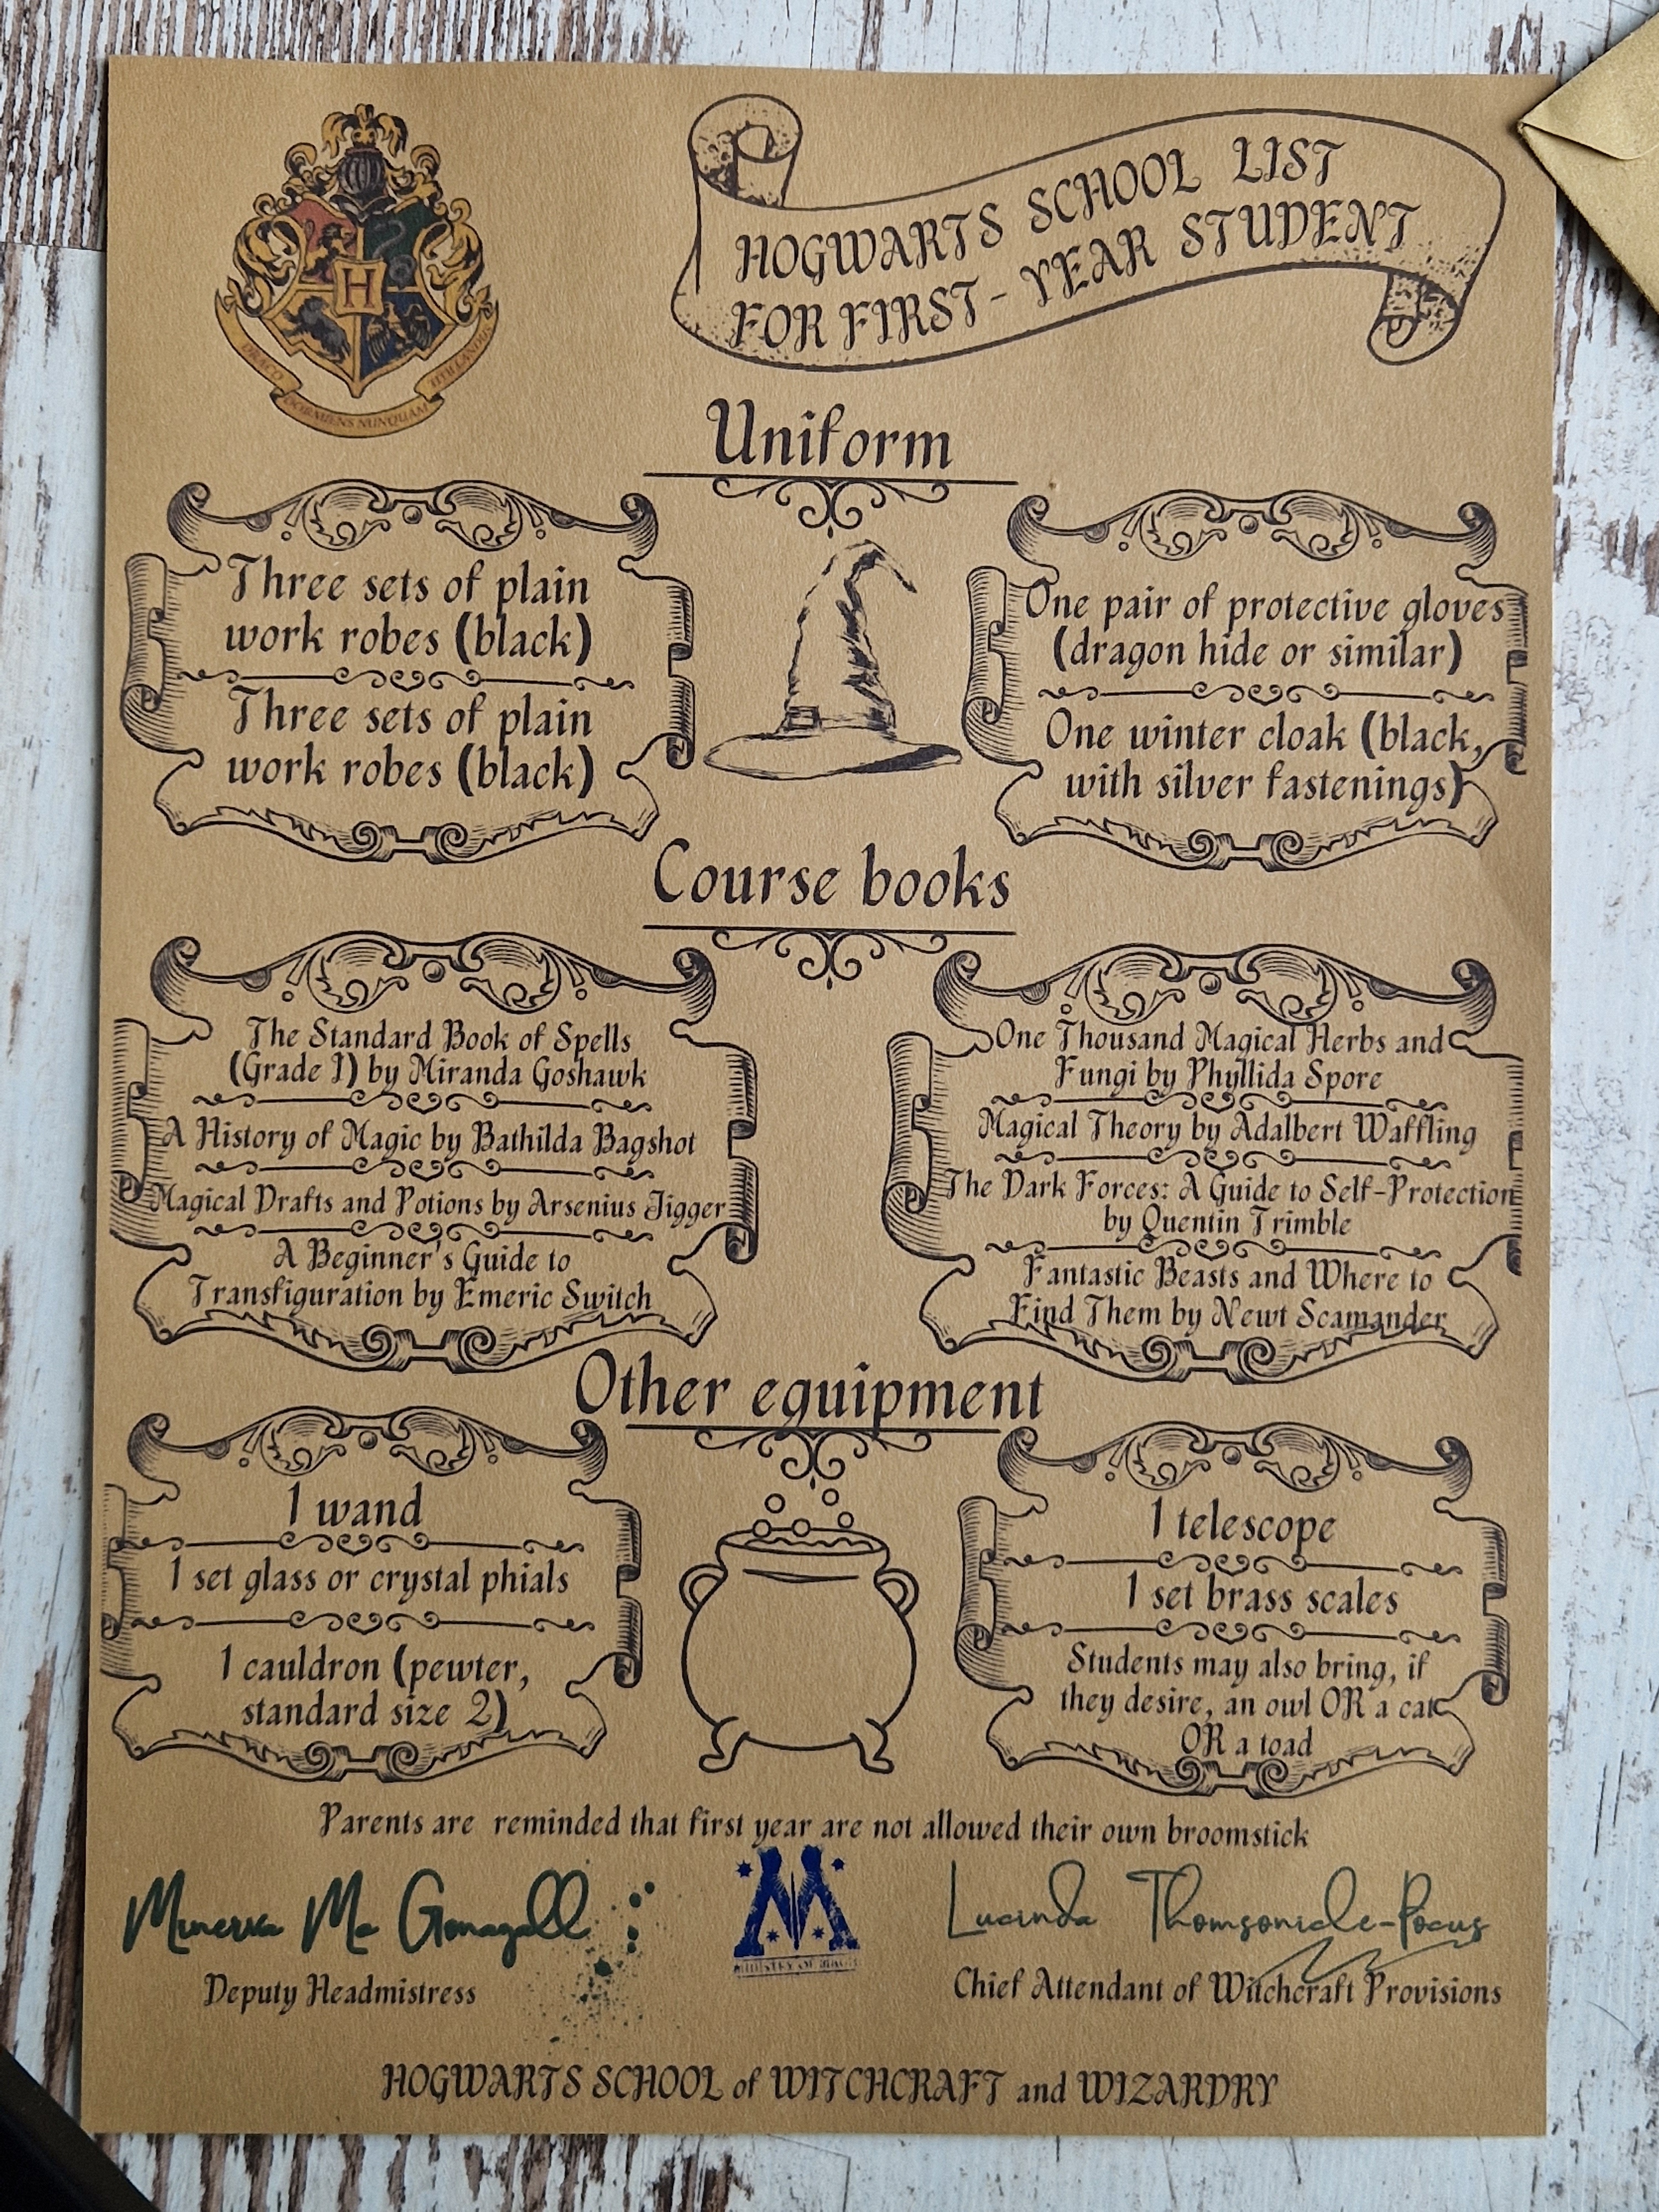 HOGWARTS SCHOOL LIST
FOR FIRST-YEAR STUDENT
H
DRACO DORMIENS NUNQUAM TITILLANDUS
Uniform
Three sets of plain
work robes (black)
Three sets of plain
work robes (black)
One pair of protective gloves
(dragon hide or similar)
One winter cloak (black,
with silver fastenings)
Course books
The Standard Book of Spells
(Grade 1) by Miranda Goshawk
A History of Magic by Bathilda Bagshot
Magical Drafts and Potions by Arsenius Jigger
A Beginner's Guide to
Transfiguration by Emeric Switch
One Thousand Magical Herbs and
Fungi by Phyllida Spore
Magical Theory by Adalbert Waffling
The Dark Forces: A Guide to Self-Protection
by Quentin Trimble
Fantastic Beasts and Where to
Find Them by Newt Scamander
Other equipment
1 wand
1 set glass or crystal phials
1 cauldron (pewter,
standard size 2)
1 telescope
1 set brass scales
Students may also bring, if
they desire, an owl OR a cat
OR a toad
Parents are reminded that first year are not allowed their own broomstick
Minerva Mc Gonagall
Deputy Headmistress
M
MINISTRY OF MAGIC
Lucinda Thomsonicle-Pocus
Chief Attendant of Witchcraft Provisions
HOGWARTS SCHOOL of WITCHCRAFT and WIZARDRY